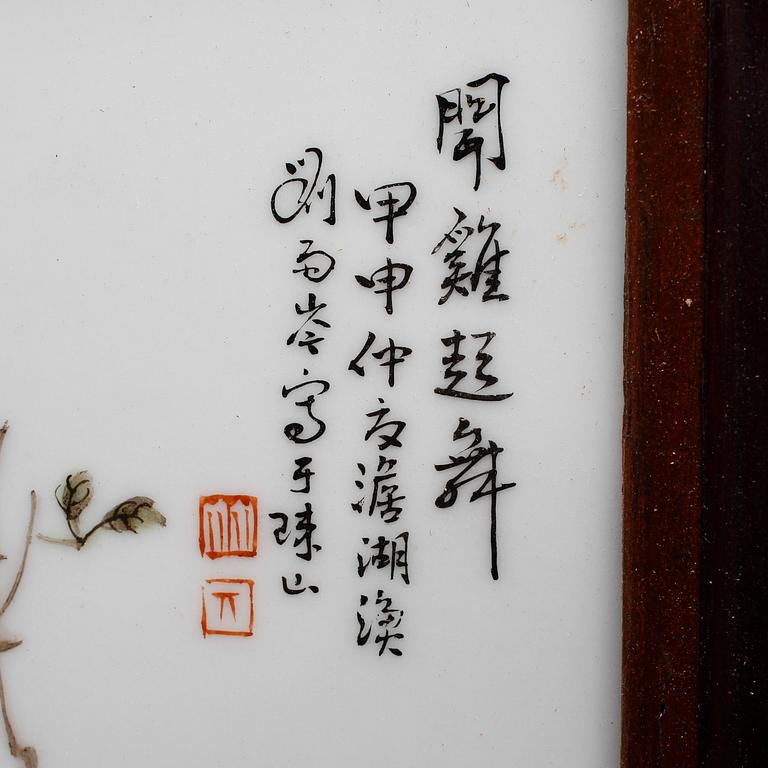 聞雞起舞
甲申仲夏澹湖漁
劉雨岑寫于珠山